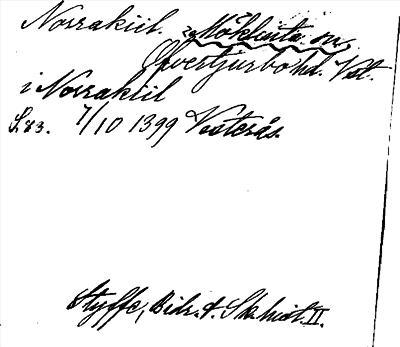 Norrakiil. Möklinta sn
Övertjurbo hd. Vstl.
i Norrakiil
S. 83. 7/10 1399 Vesterås
Styffe, Bidr. t. Sk. hist. II.